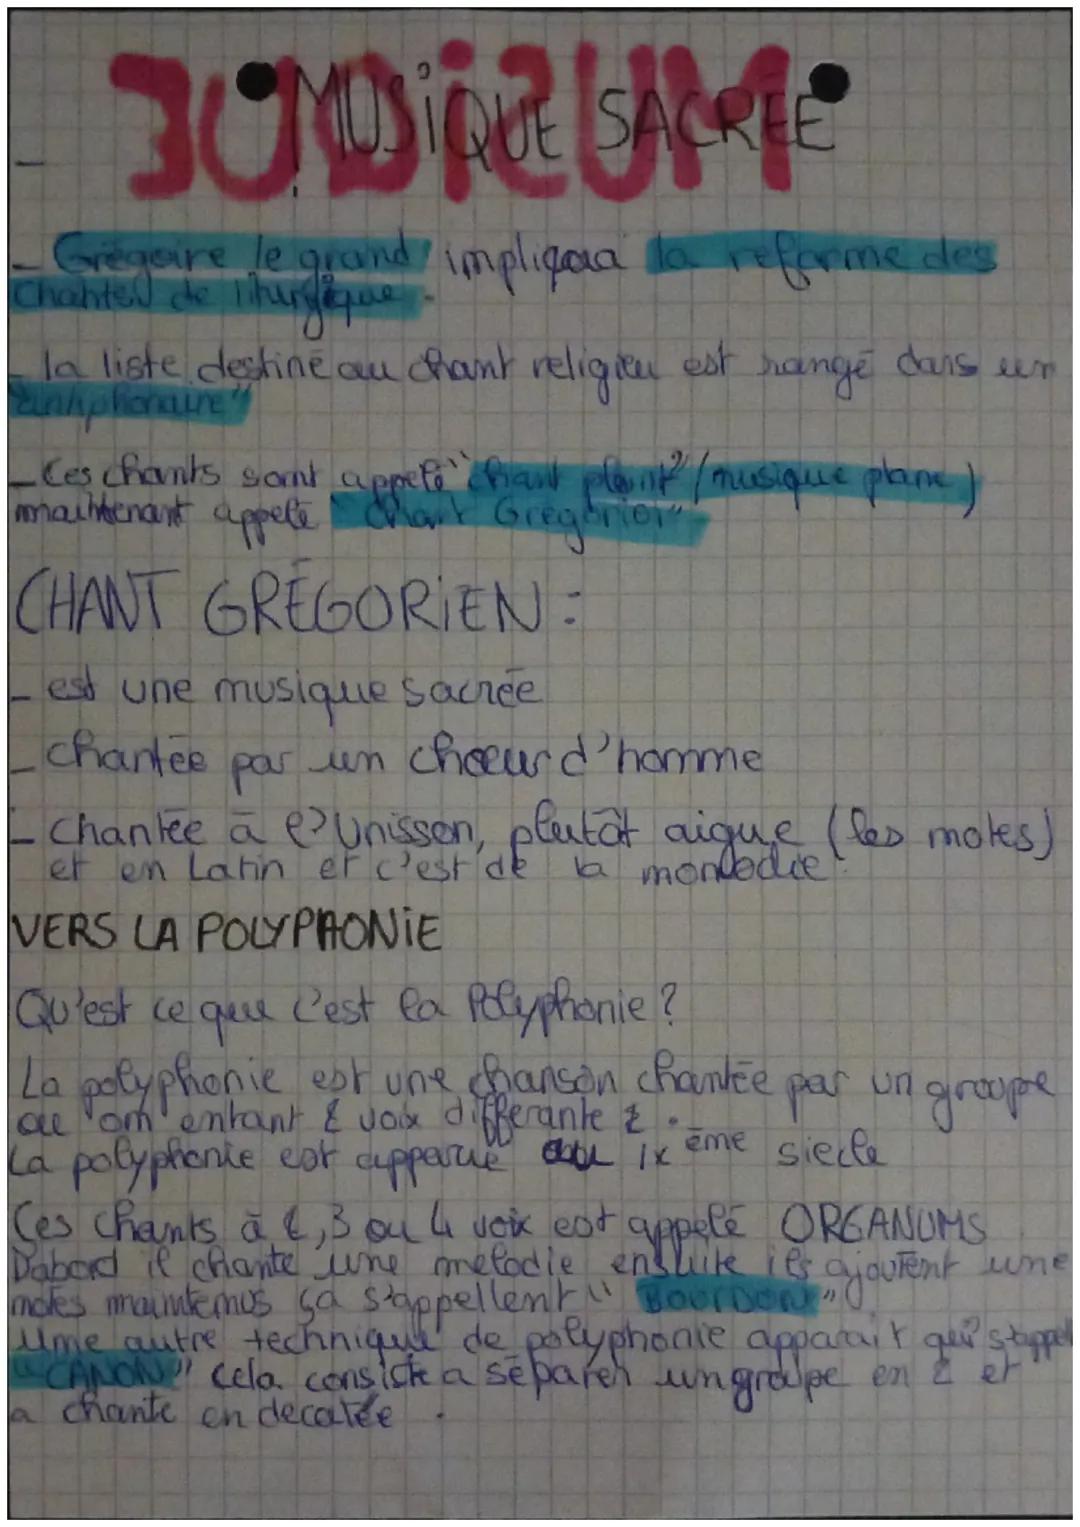 • MUSiQUE SACRÉE •
MUSiQUE
- Grégoire le grand impliqua la reforme des
Chantes de liturgique.
- la liste destiné au chant religieu est rangé dans un
"antiphonaire"
- Ces chants sont appelé "chant plaint" (musique plane)
maintenant appelé "Chant Gregorien"
CHANT GRÉGORiEN :
- est une musique sacrée
- chantée par un chœur d'homme
- chantée à l'unisson, plutôt aigue (les notes)
et en Latin et c'est de la monodie.
VERS LA POLYPHONiE
Qu'est ce que c'est la Polyphonie ?
La polyphonie est une chanson chantée par un groupe
ou om entant 2 voix différante 2.
La polyphonie est apparue au IX ème siecle
Ces chants à 2, 3 ou 4 voix est appelé ORGANUMS
D'abord il chante une melodie ensuite ils ajoutent une
notes maintenus ça s'appellent " BOURDON "
Une autre technique de polyphonie apparait qui s'appel
"CANON" Cela consiste a séparer un groupe en 2 et
a chante en decalée .